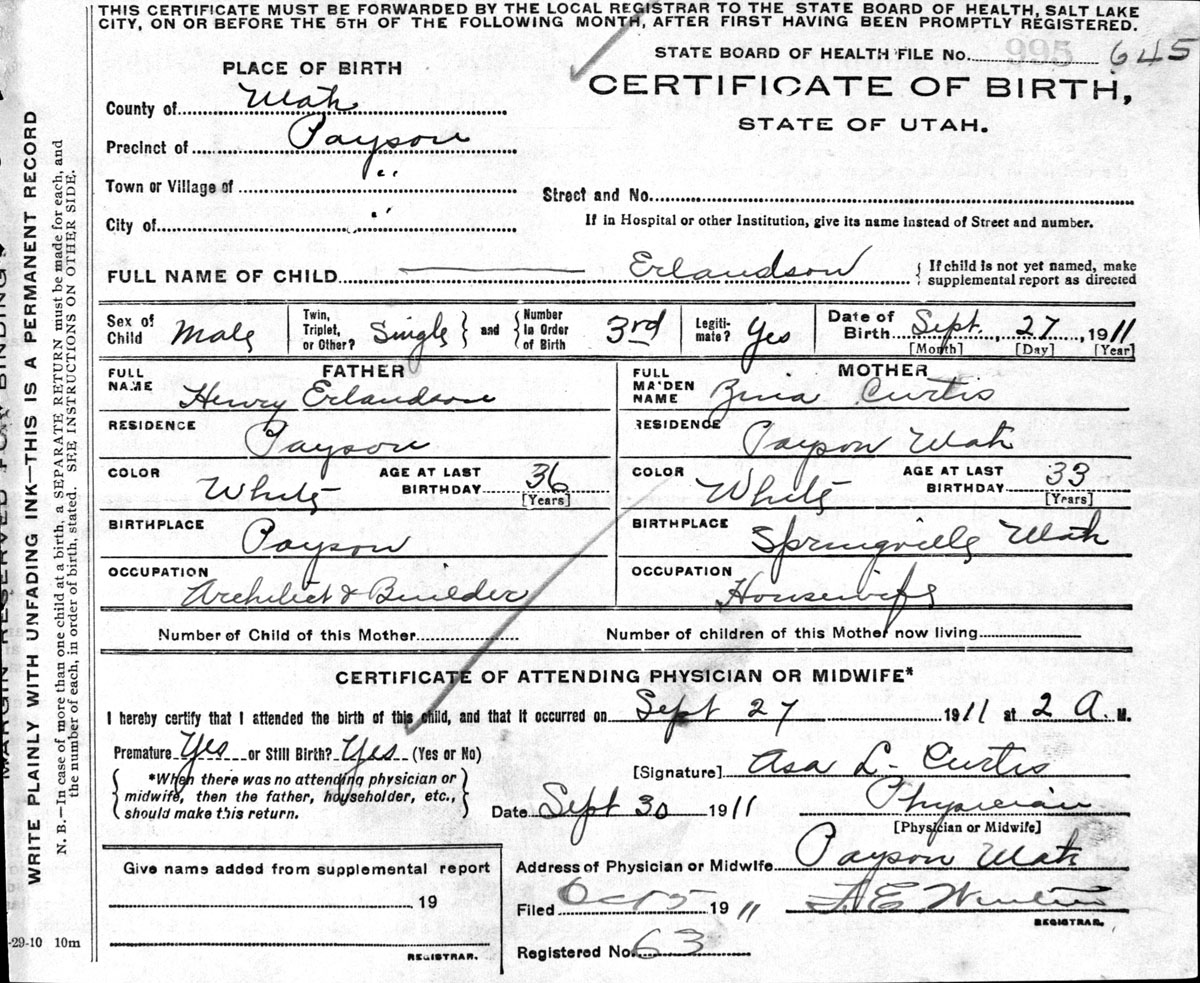 THIS CERTIFICATE MUST BE FORWARDED BY THE LOCAL REGISTRAR TO THE STATE BOARD OF HEALTH, SALT LAKE
CITY, ON OR BEFORE THE 5TH OF THE FOLLOWING MONTH, AFTER FIRST HAVING BEEN PROMPTLY REGISTERED.
STATE BOARD OF HEALTH FILE No. 995 645
PLACE OF BIRTH
CERTIFICATE OF BIRTH,
STATE OF UTAH.
County of Utah
Precinct of Payson
Town or Village of "
City of "
Street and No.
If in Hospital or other Institution, give its name instead of Street and number.
FULL NAME OF CHILD Erlandson { If child is not yet named, make supplemental report as directed
Sex of Child Male Twin, Triplet, or Other? Single } and { Number in Order of Birth 3rd Legitimate? Yes Date of Birth Sept. 27, 1911
[Month] [Day] [Year]
FATHER MOTHER
FULL NAME Henry Erlandson FULL MAIDEN NAME Zina Curtis
RESIDENCE Payson RESIDENCE Payson Utah
COLOR White AGE AT LAST BIRTHDAY 36 [Years] COLOR White AGE AT LAST BIRTHDAY 33 [Years]
BIRTHPLACE Payson BIRTHPLACE Springville Utah
OCCUPATION Architect & Builder OCCUPATION Housewife
Number of Child of this Mother Number of children of this Mother now living
CERTIFICATE OF ATTENDING PHYSICIAN OR MIDWIFE*
I hereby certify that I attended the birth of this child, and that it occurred on Sept 27 1911 at 2 A. M.
Premature Yes or Still Birth? Yes (Yes or No)
*When there was no attending physician or
midwife, then the father, householder, etc.,
should make this return.
[Signature] Asa L. Curtis
Date Sept 30 1911 Physician
[Physician or Midwife]
Address of Physician or Midwife Payson Utah
Filed Oct 5 1911 F. E.
REGISTRAR.
Registered No. 63
Give name added from supplemental report
19
REGISTRAR.
MARGIN RESERVED FOR BINDING
WRITE PLAINLY WITH UNFADING INK—THIS IS A PERMANENT RECORD
N. B.—In case of more than one child at a birth, a SEPARATE RETURN must be made for each, and
the number of each, in order of birth, stated. SEE INSTRUCTIONS ON OTHER SIDE.
-29-10 10m